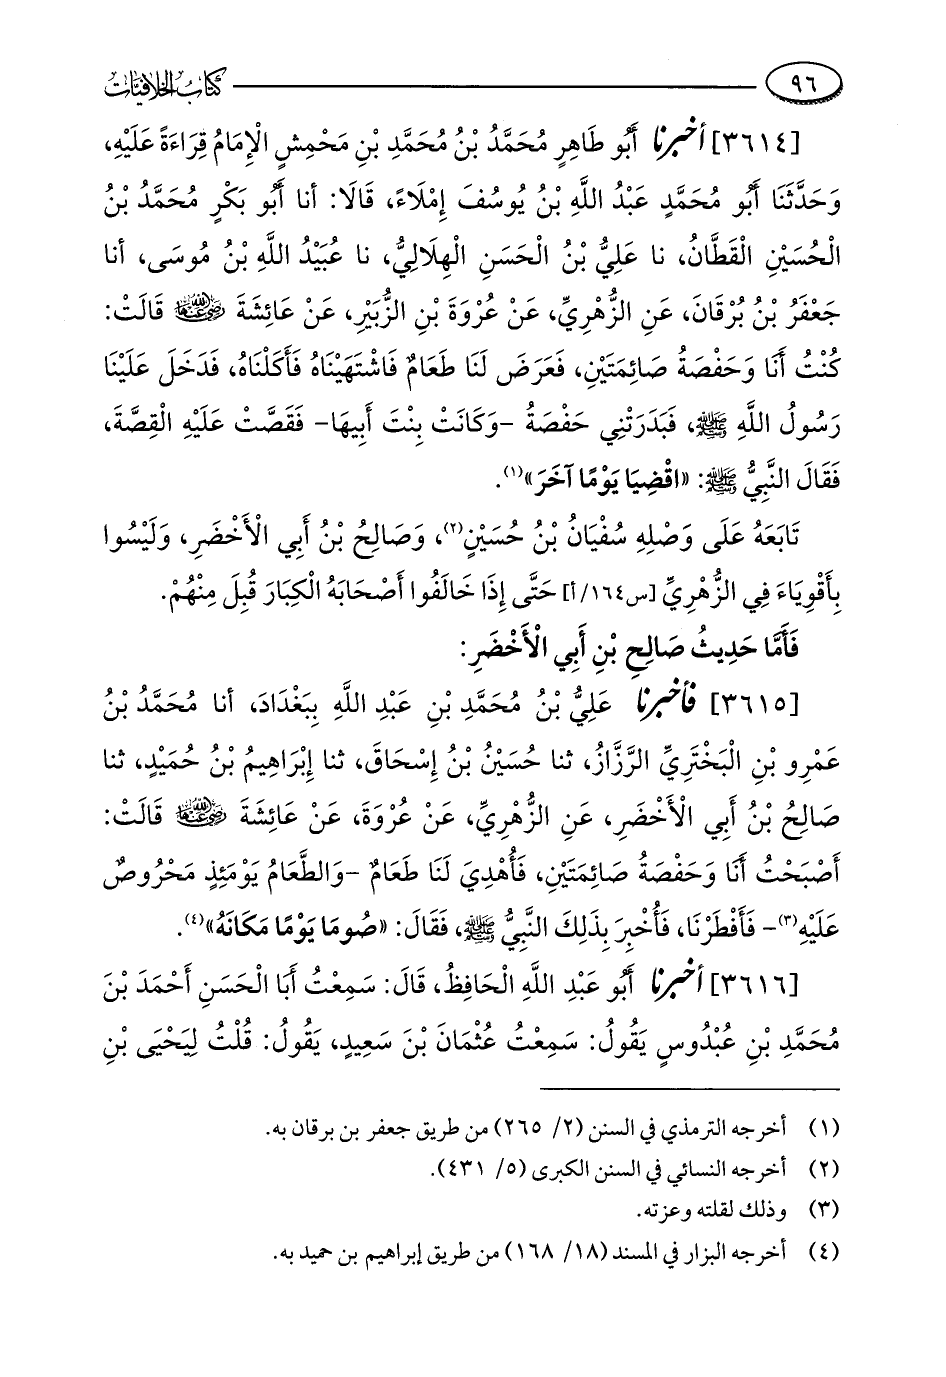 ٩٦
كتاب الخلافيات
[٣٦١٤] أخبرنا أَبُو طَاهِرٍ مُحَمَّدُ بْنُ مُحَمَّدِ بْنِ مَحْمِشٍ الْإِمَامُ قِرَاءَةً عَلَيْهِ،
وَحَدَّثَنَا أَبُو مُحَمَّدٍ عَبْدُ اللَّهِ بْنُ يُوسُفَ إِمْلَاءً، قَالَا: أنا أَبُو بَكْرٍ مُحَمَّدُ بْنُ
الْحُسَيْنِ الْقَطَّانُ، نا عَلِيُّ بْنُ الْحَسَنِ الْهِلَالِيُّ، نا عُبَيْدُ اللَّهِ بْنُ مُوسَى، أنا
جَعْفَرُ بْنُ بُرْقَانَ، عَنِ الزُّهْرِيِّ، عَنْ عُرْوَةَ بْنِ الزُّبَيْرِ، عَنْ عَائِشَةَ رضي الله عنها قَالَتْ:
كُنْتُ أَنَا وَحَفْصَةُ صَائِمَتَيْنِ، فَعَرَضَ لَنَا طَعَامٌ فَاشْتَهَيْنَاهُ فَأَكَلْنَاهُ، فَدَخَلَ عَلَيْنَا
رَسُولُ اللَّهِ ﷺ، فَبَدَرَتْنِي حَفْصَةُ -وَكَانَتْ بِنْتَ أَبِيهَا- فَقَصَّتْ عَلَيْهِ الْقِصَّةَ،
فَقَالَ النَّبِيُّ ﷺ: «اقْضِيَا يَوْمًا آخَرَ»(١).
تَابَعَهُ عَلَى وَصْلِهِ سُفْيَانُ بْنُ حُسَيْنٍ(٢)، وَصَالِحُ بْنُ أَبِي الْأَخْضَرِ، وَلَيْسُوا
بِأَقْوِيَاءَ فِي الزُّهْرِيِّ [س١٦٤/أ] حَتَّى إِذَا خَالَفُوا أَصْحَابَهُ الْكِبَارَ قُبِلَ مِنْهُمْ.
فَأَمَّا حَدِيثُ صَالِحِ بْنِ أَبِي الْأَخْضَرِ:
[٣٦١٥] فأخبرنا عَلِيُّ بْنُ مُحَمَّدِ بْنِ عَبْدِ اللَّهِ بِبَغْدَادَ، أنا مُحَمَّدُ بْنُ
عَمْرِو بْنِ الْبَخْتَرِيِّ الرَّزَّازُ، ثنا حُسَيْنُ بْنُ إِسْحَاقَ، ثنا إِبْرَاهِيمُ بْنُ حُمَيْدٍ، ثنا
صَالِحُ بْنُ أَبِي الْأَخْضَرِ، عَنِ الزُّهْرِيِّ، عَنْ عُرْوَةَ، عَنْ عَائِشَةَ رضي الله عنها قَالَتْ:
أَصْبَحْتُ أَنَا وَحَفْصَةُ صَائِمَتَيْنِ، فَأُهْدِيَ لَنَا طَعَامٌ -وَالطَّعَامُ يَوْمَئِذٍ مَحْرُوصٌ
عَلَيْهِ(٣)- فَأَفْطَرْنَا، فَأُخْبِرَ بِذَلِكَ النَّبِيُّ ﷺ، فَقَالَ: «صُومَا يَوْمًا مَكَانَهُ»(٤).
[٣٦١٦] أخبرنا أَبُو عَبْدِ اللَّهِ الْحَافِظُ، قَالَ: سَمِعْتُ أَبَا الْحَسَنِ أَحْمَدَ بْنَ
مُحَمَّدِ بْنِ عُبْدُوسٍ يَقُولُ: سَمِعْتُ عُثْمَانَ بْنَ سَعِيدٍ، يَقُولُ: قُلْتُ لِيَحْيَى بْنِ
(١) أخرجه الترمذي في السنن (٢/ ٢٦٥) من طريق جعفر بن برقان به.
(٢) أخرجه النسائي في السنن الكبرى (٥/ ٤٣١).
(٣) وذلك لقلته وعزته.
(٤) أخرجه البزار في المسند (١٨/ ١٦٨) من طريق إبراهيم بن حميد به.